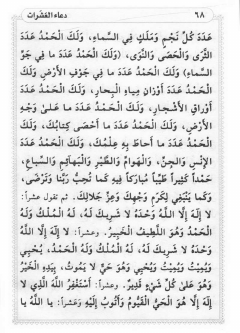 ٦٨ دعاء العشرات
عَدَدَ كُلِّ نَجْمٍ وَمَلَكٍ فِي السَّماءِ، وَلَكَ الْحَمْدُ عَدَدَ
الثَّرَى وَالْحَصَى وَالنَّوَى، (وَلَكَ الْحَمْدُ عَدَدَ ما فِي جَوِّ
السَّماءِ) وَلَكَ الْحَمْدُ عَدَدَ ما فِي جَوْفِ الأَرْضِ، وَلَكَ
الْحَمْدُ عَدَدَ أَوْزانِ مِياهِ الْبِحارِ، وَلَكَ الْحَمْدُ عَدَدَ
أَوْراقِ الأَشْجارِ، وَلَكَ الْحَمْدُ عَدَدَ ما عَلى وَجْهِ
الأَرْضِ، وَلَكَ الْحَمْدُ عَدَدَ ما أَحْصى كِتابُكَ، وَلَكَ
الْحَمْدُ عَدَدَ ما أَحاطَ بِهِ عِلْمُكَ، وَلَكَ الْحَمْدُ عَدَدَ
الإِنْسِ وَالْجِنِّ، وَالْهَوامِّ وَالطَّيْرِ وَالْبَهائِمِ وَالسِّباعِ،
حَمْداً كَثِيراً طَيِّباً مُبارَكاً فِيهِ كَما تُحِبُّ رَبَّنا وَتَرْضى،
وَكَما يَنْبَغِي لِكَرَمِ وَجْهِكَ وَعِزِّ جَلالِكَ. ثم تقول عشراً:
لا إِلَهَ إِلَّا اللَّهُ وَحْدَهُ لا شَرِيكَ لَهُ، لَهُ الْمُلْكُ وَلَهُ
الْحَمْدُ وَهُوَ اللَّطِيفُ الْخَبِيرُ. وعشراً: لا إِلَهَ إِلَّا اللَّهُ
وَحْدَهُ لا شَرِيكَ لَهُ، لَهُ الْمُلْكُ وَلَهُ الْحَمْدُ، يُحْيِي
وَيُمِيتُ وَيُمِيتُ وَيُحْيِي وَهُوَ حَيٌّ لا يَمُوتُ، بِيَدِهِ الْخَيْرُ
وَهُوَ عَلى كُلِّ شَيْءٍ قَدِيرٌ. وعشراً: أَسْتَغْفِرُ اللَّهَ الَّذِي لا
إِلَهَ إِلَّا هُوَ الْحَيُّ الْقَيُّومُ وَأَتُوبُ إِلَيْهِ وَعشراً: يا اللَّهُ يا